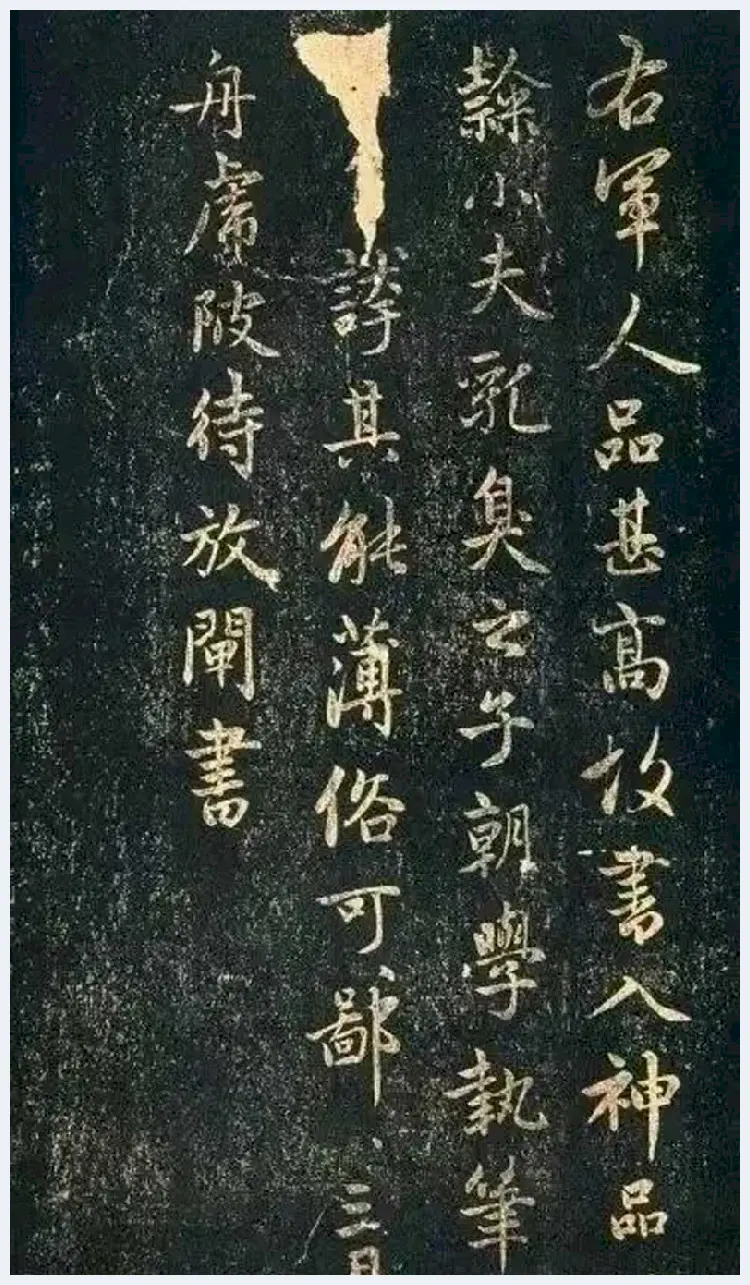 右軍人品甚高故書入神品
隸小夫乳臭之子朝學執筆
誇其能薄俗可鄙、、三月
舟虎陂待放閘書